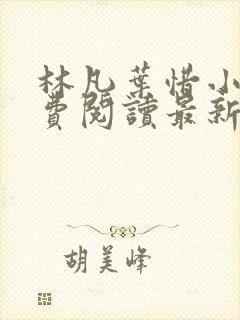 林凡葉惜小
費閱讀最新
胡美峰